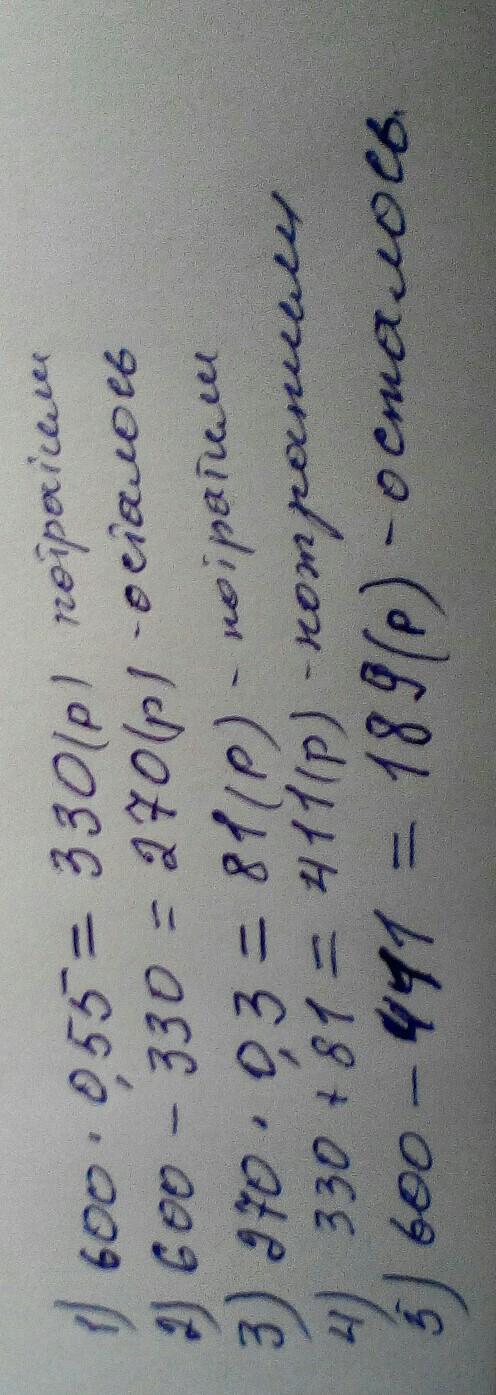 1) 600 · 0,55 = 330(р) потратили
2) 600 - 330 = 270(р) - осталось
3) 270 · 0,3 = 81(р) - потратили
4) 330 + 81 = 411(р) - потратили
5) 600 - 411 = 189(р) - осталось.